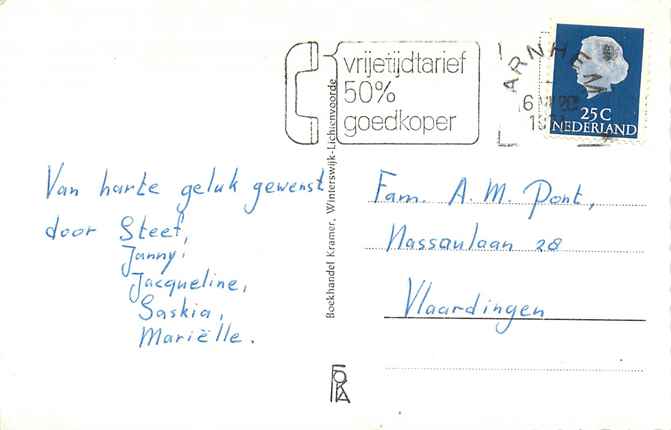 vrijetijdtarief
50%
goedkoper
ARNHEM
25 C
NEDERLAND
Van harte geluk gewenst
door Steef,
Janny,
Jacqueline,
Saskia,
Mariëlle.
Boekhandel Kramer, Winterswijk-Lichtenvoorde
FOKA
Fam. A. M. Pont,
Nassaulaan 28
Vlaardingen